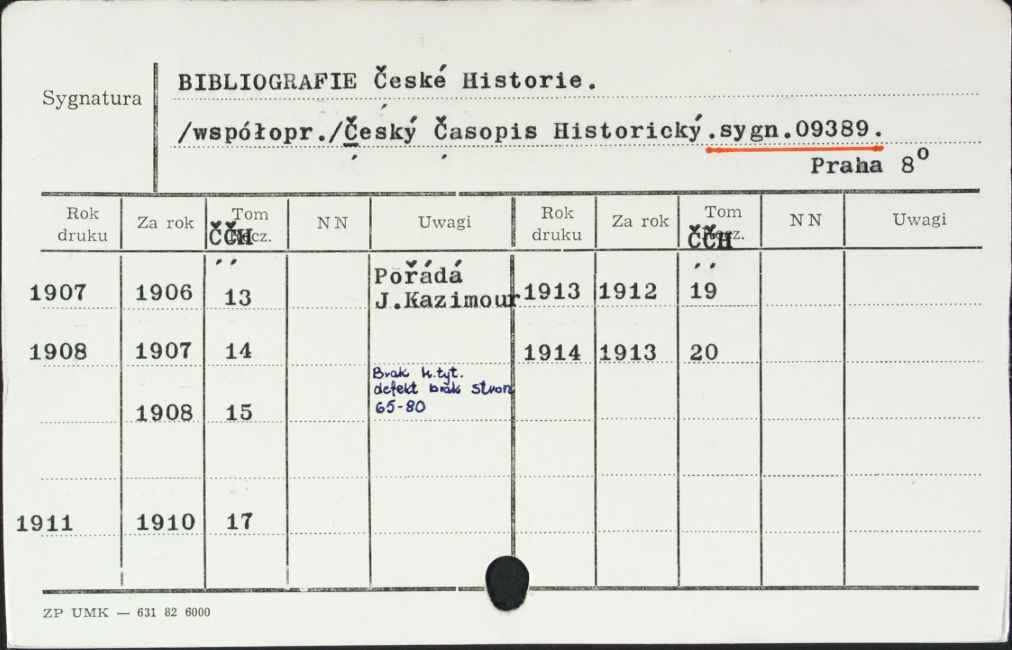 Sygnatura
BIBLIOGRAFIE České Historie.
/współopr./Český Časopis Historický.sygn.09389.
Praha 8°
Rok druku Za rok Tom Rocz. NN Uwagi Rok druku Za rok Tom Rocz. NN Uwagi
ČČH ČČH
Pořádá
1907 1906 13 J.Kazimour 1913 1912 19
1908 1907 14 1914 1913 20
Brak k.tyt.
defekt brak stron
1908 15 65-80
1911 1910 17
ZP UMK — 631 82 6000